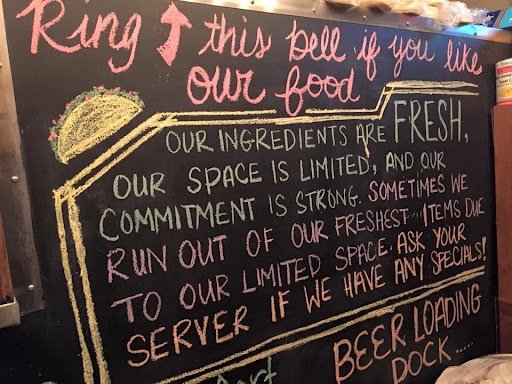 Ring ↑ this bell if you like
our food
OUR INGREDIENTS ARE FRESH,
OUR SPACE IS LIMITED, AND OUR
COMMITMENT IS STRONG. SOMETIMES WE
RUN OUT OF OUR FRESHEST ITEMS DUE
TO OUR LIMITED SPACE. ASK YOUR
SERVER IF WE HAVE ANY SPECIALS!
BEER LOADING
DOCK.....